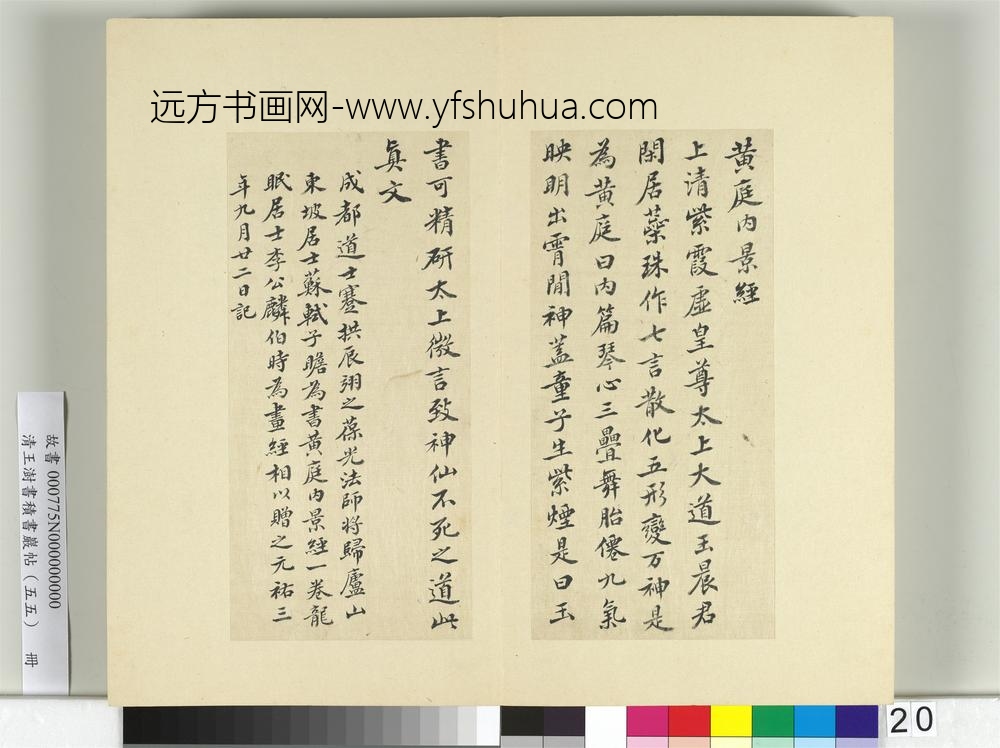 远方书画网-www.yfshuhua.com
黄庭内景經
上清紫霞虛皇尊太上大道玉晨君
閑居蘂珠作七言散化五形變万神是
為黄庭曰内篇琴心三疊舞胎僊九氣
映明出霄間神蓋童子生紫煙是曰玉
書可精研太上微言致神仙不死之道此
真文
成都道士蹇拱辰翊之葆光法師將歸廬山
東坡居士蘇軾子瞻為書黄庭内景經一卷龍
眠居士李公麟伯時為畫經相以贈之元祐三
年九月廿二日記
故書 000775N000000000
清王澍書積書巖帖（五五） 冊
20